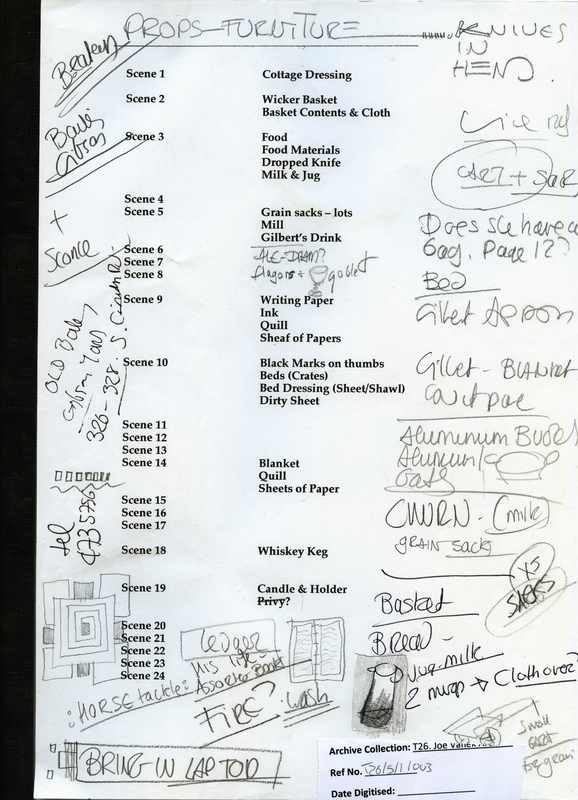 PROPS-FURNITURE
KNIVES
IN
HEND.
Scene 1 Cottage Dressing
Scene 2 Wicker Basket
Basket Contents & Cloth
Scene 3 Food
Food Materials
Dropped Knife
Milk & Jug
Scene 4
Scene 5 Grain sacks – lots
Mill
Gilbert's Drink
Scene 6
Scene 7
Scene 8
flagons + goblet
Scene 9 Writing Paper
Ink
Quill
Sheaf of Papers
Scene 10 Black Marks on thumbs
Beds (Crates)
Bed Dressing (Sheet/Shawl)
Dirty Sheet
Scene 11
Scene 12
Scene 13
Scene 14 Blanket
Quill
Sheets of Paper
Scene 15
Scene 16
Scene 17
Scene 18 Whiskey Keg
Scene 19 Candle & Holder
Privy?
Scene 20
Scene 21
Scene 22
Scene 23
Scene 24
+
Sconce
326-328. S.
tel
4735756
CART + SACK
Does she have a
bag. Page 12?
Bed
Gilbert Apron
BLANKET
Aluminum Bucket
CHURN - (milk)
GRAIN sacks
X5
SACKS
Basket
Bread -
Jug-milk
Cloth over?
Small
Cart
For grain
Ledger
His life -
Assorted Books
FIRE?
: wash
: HORSE tackle:
BRING IN LAPTOP
Archive Collection: T26. Joe Vanek
Ref No. T26/5/1/003
Date Digitised: